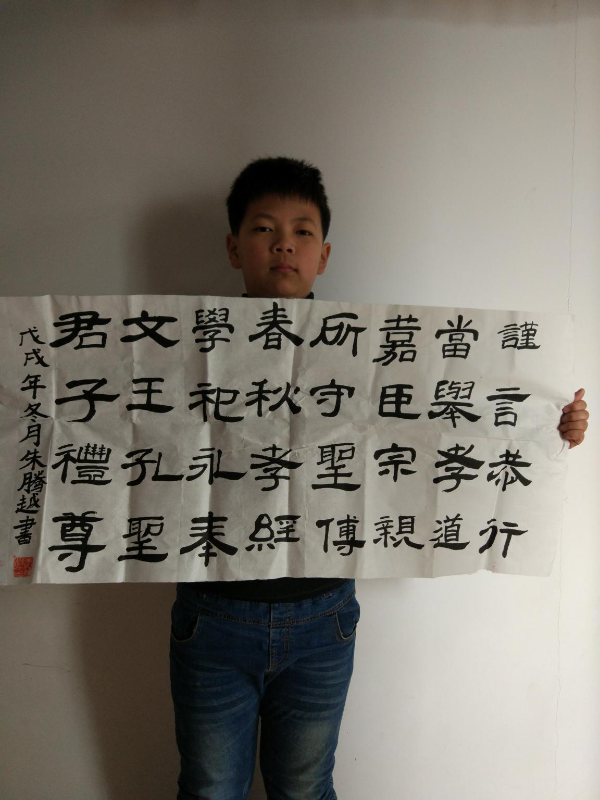 謹言恭行
當舉孝道
嘉臣宗親
所守聖傅
春秋孝經
學祀永奉
文王孔聖
君子禮尊
戊戌年冬月朱勝越書